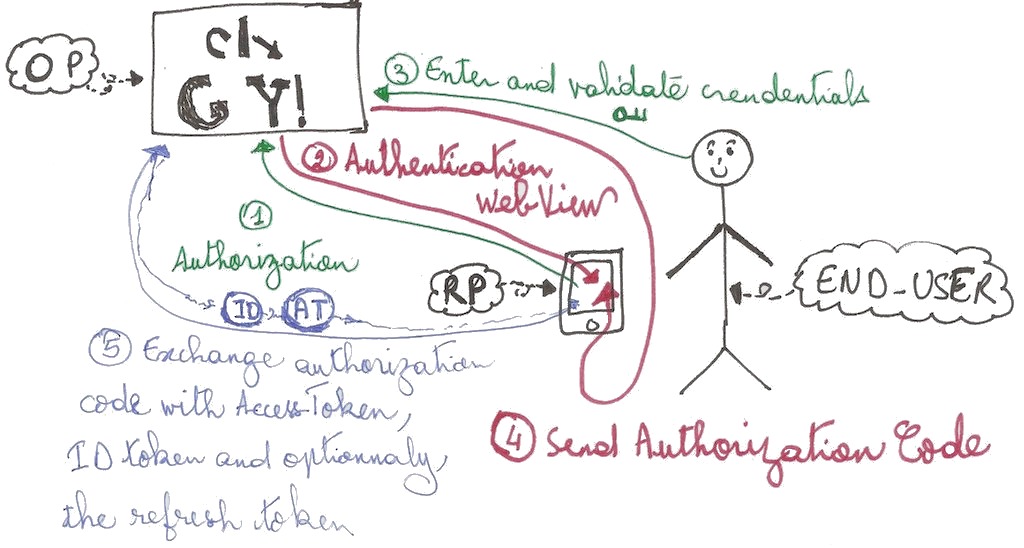 OP
G Y!
③ Enter and validate crendentials
② Authentication
WebView
①
Authorization
RP
END_USER
ID AT
⑤ Exchange authorization
code with Access-Token,
ID token and optionnaly,
the refresh token
④ Send Authorization Code